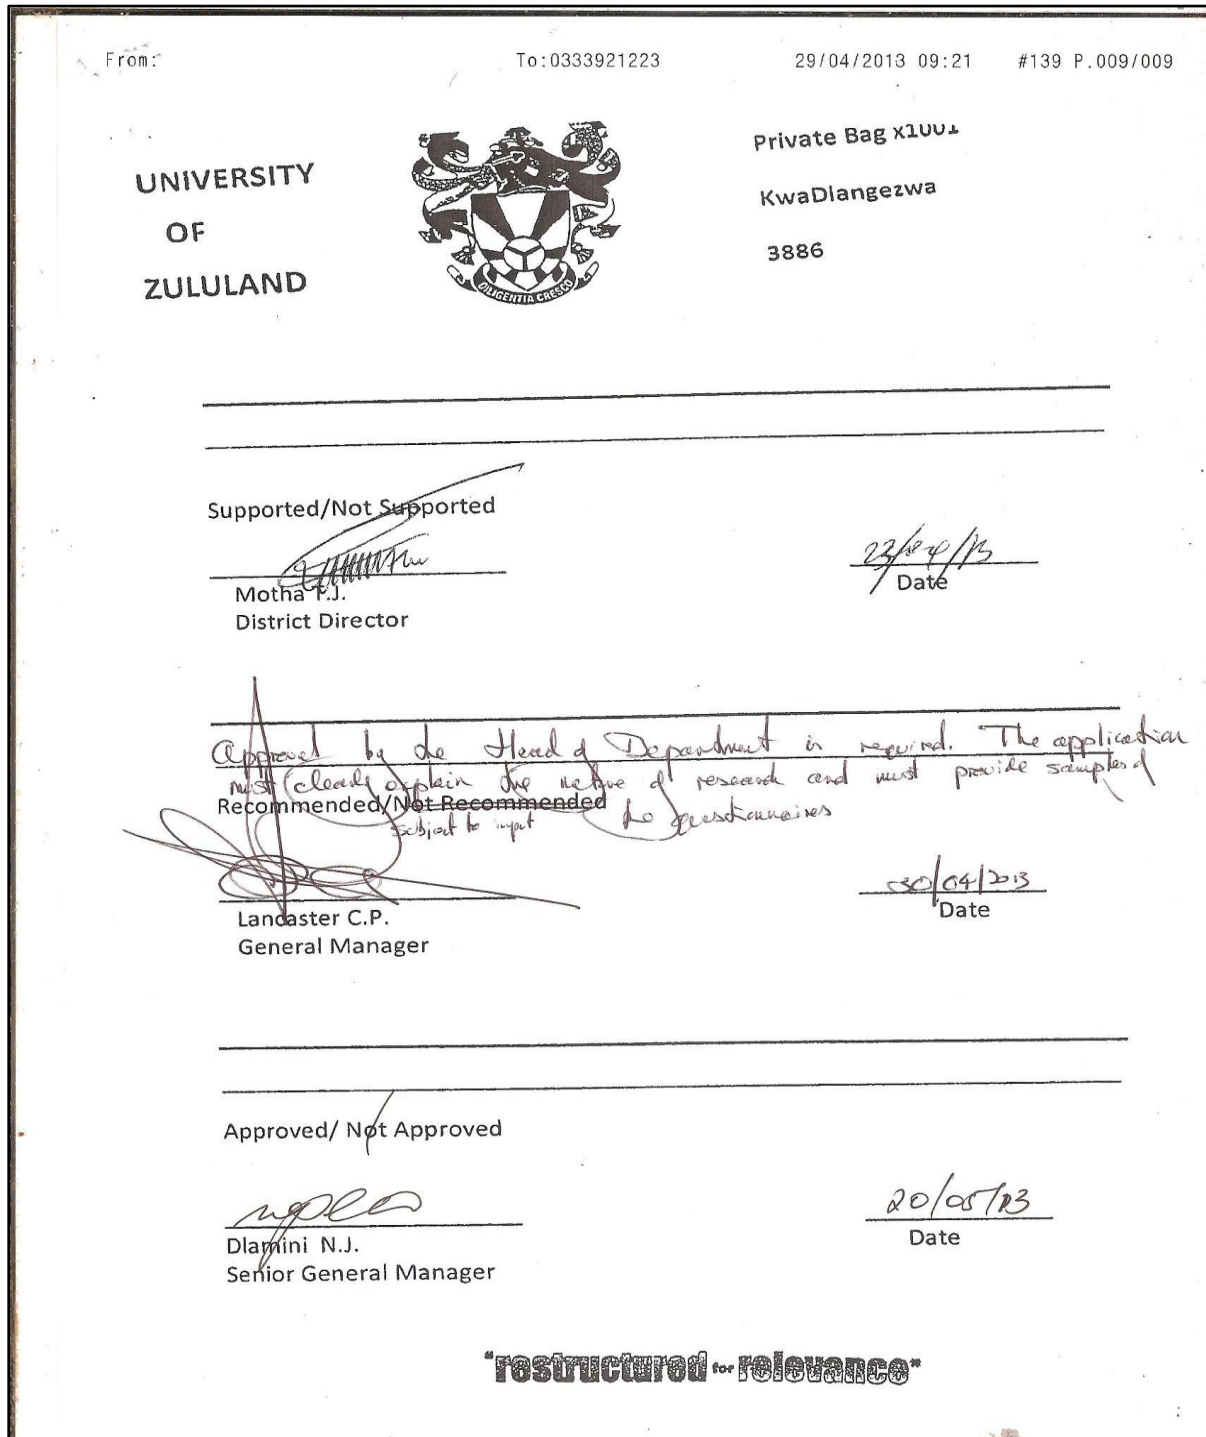 From: To:0333921223 29/04/2013 09:21 #139 P.009/009
UNIVERSITY
OF
ZULULAND
DILIGENTIA CRESCO
Private Bag x1001
KwaDlangezwa
3886
Supported/Not Supported
Motha T.J.
Date
District Director
Approval by the Head of Department is required. The application
must clearly explain the nature of research and must provide samples of
Recommended/Not Recommended the questionnaires
subject to input
30/04/2013
Lancaster C.P.
Date
General Manager
Approved/ Not Approved
20/05/13
Dlamini N.J.
Date
Senior General Manager
"restructured for relevance"